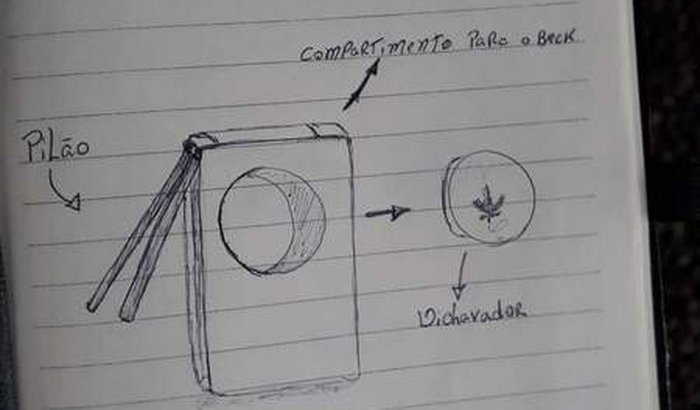 COMPARTIMENTO PARA O BECK
PiLão
Dichavador